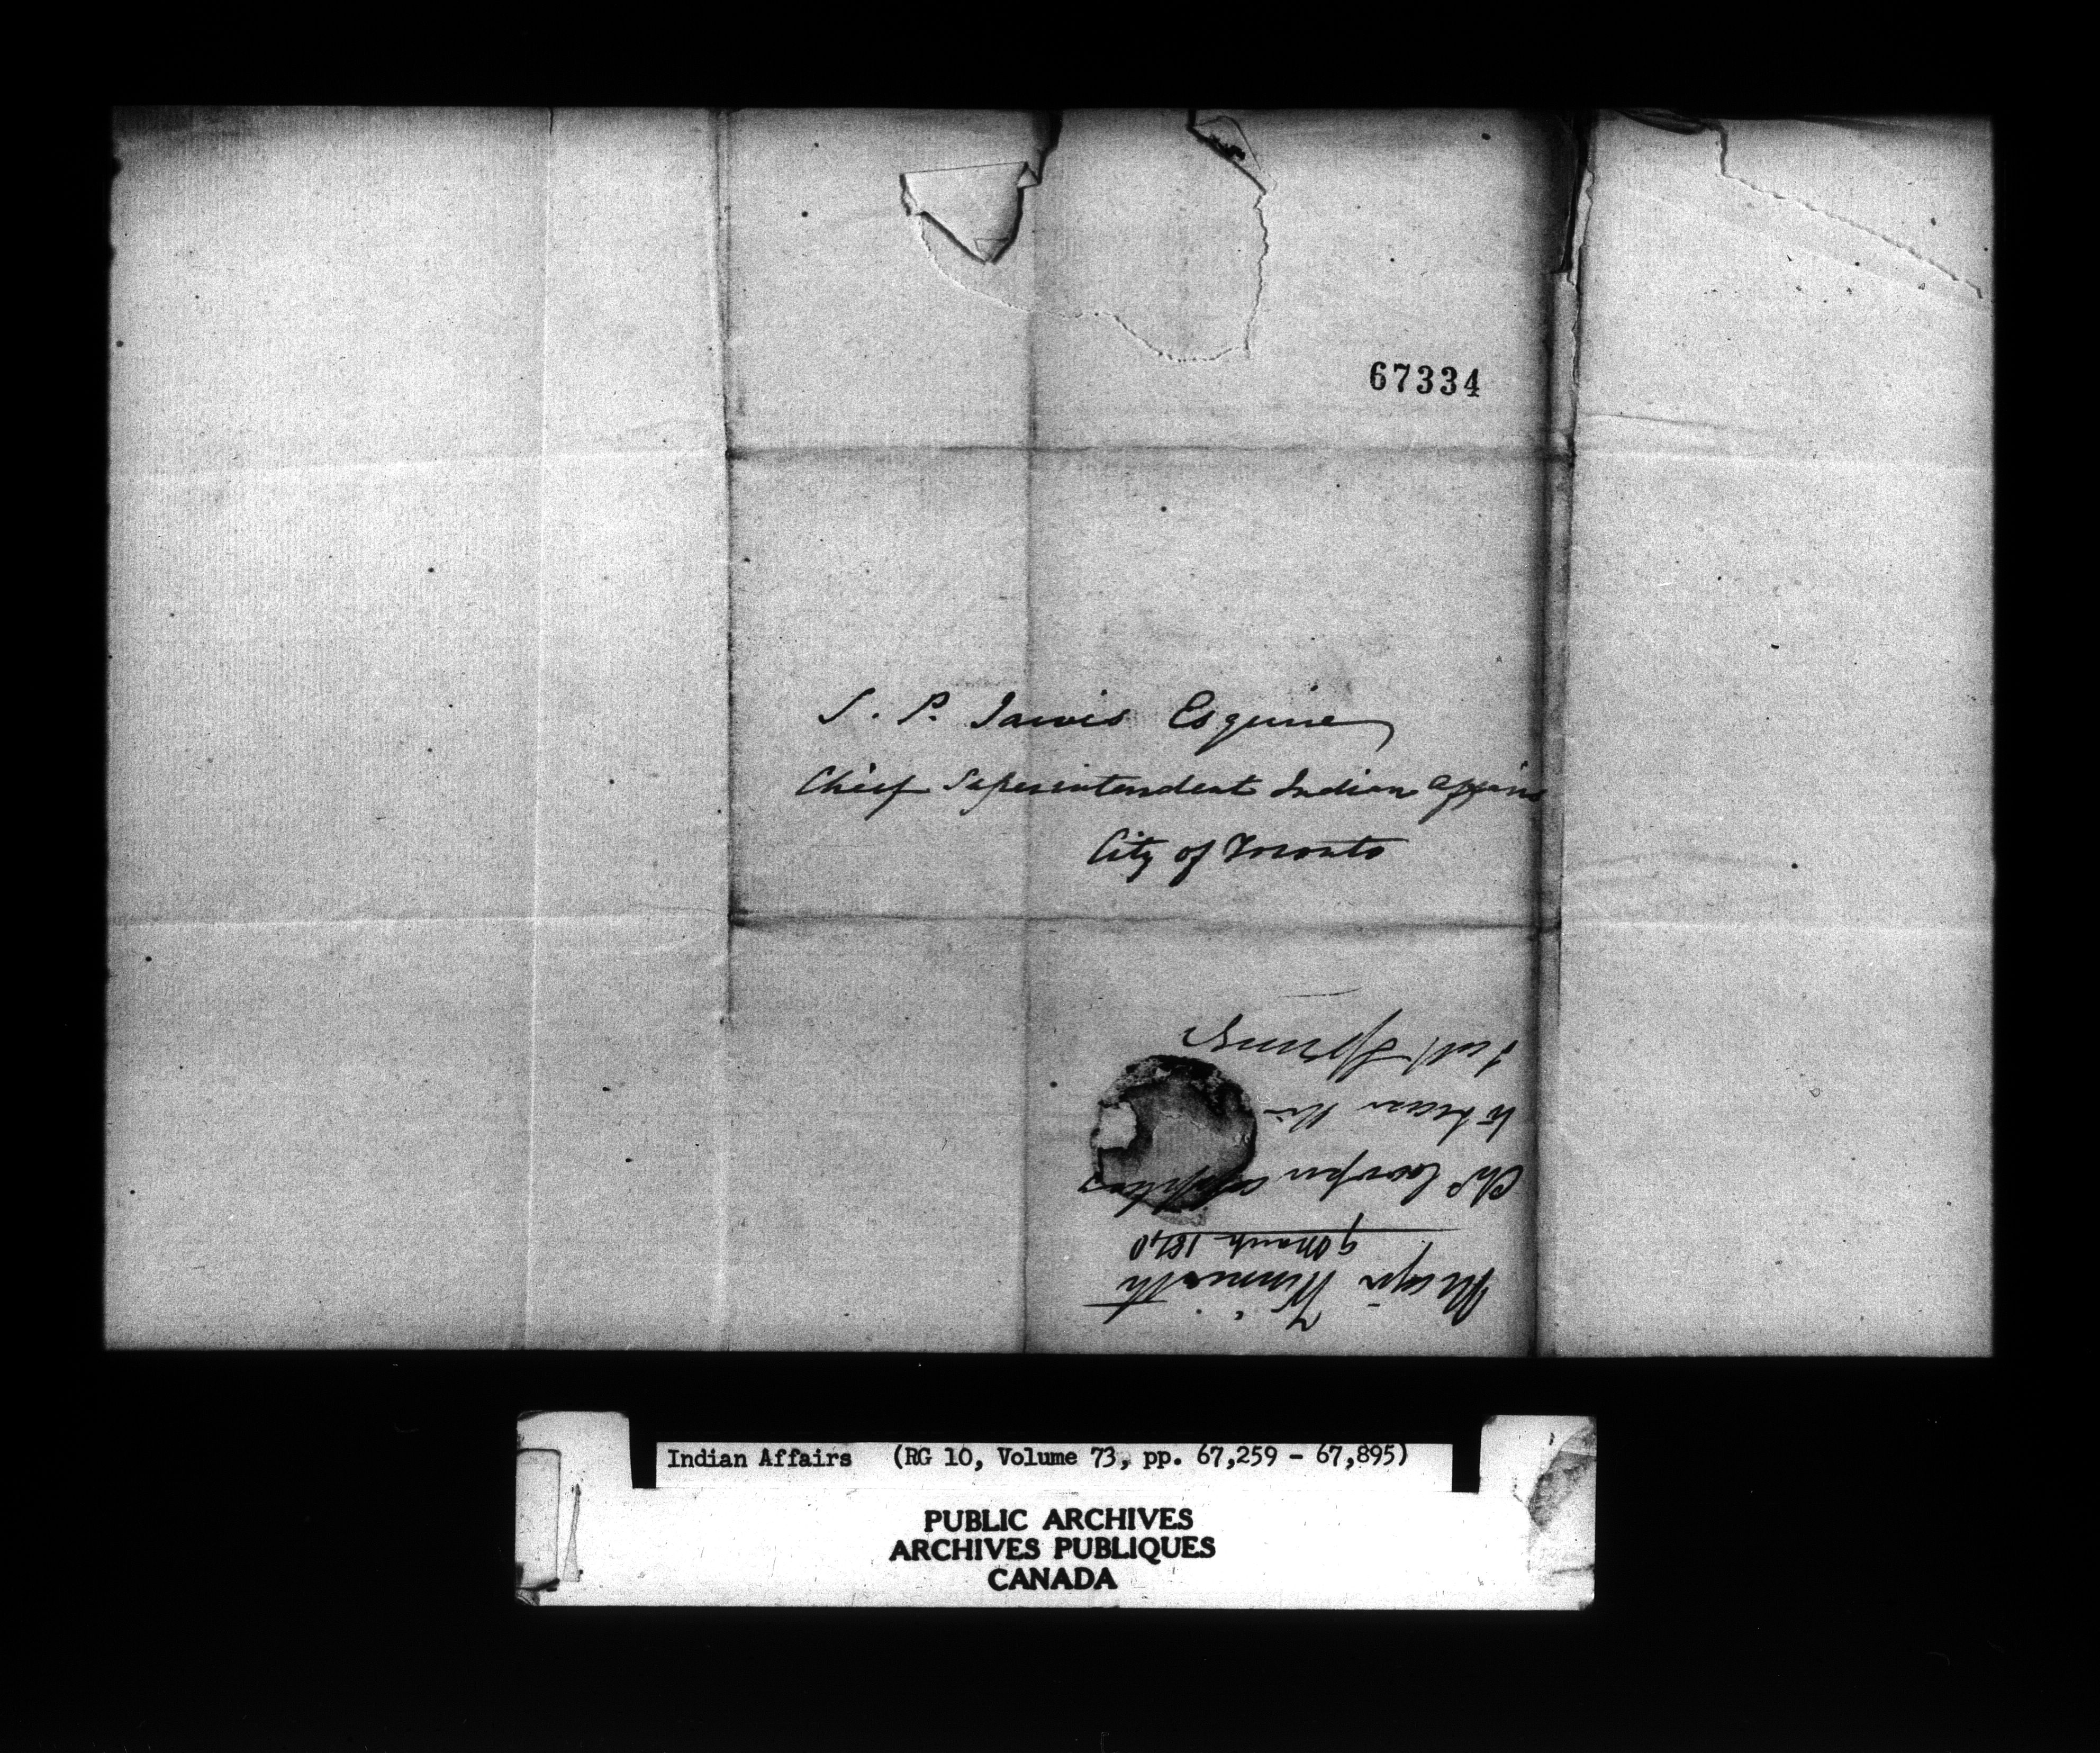 67334
S. P. Jarvis Esquire
Chief Superintendent Indian Affairs
City of Toronto
Major Winniett
9 March 1840
Chs Cooper
Indian Affairs (RG 10, Volume 73, pp. 67,259 - 67,895)
PUBLIC ARCHIVES
ARCHIVES PUBLIQUES
CANADA